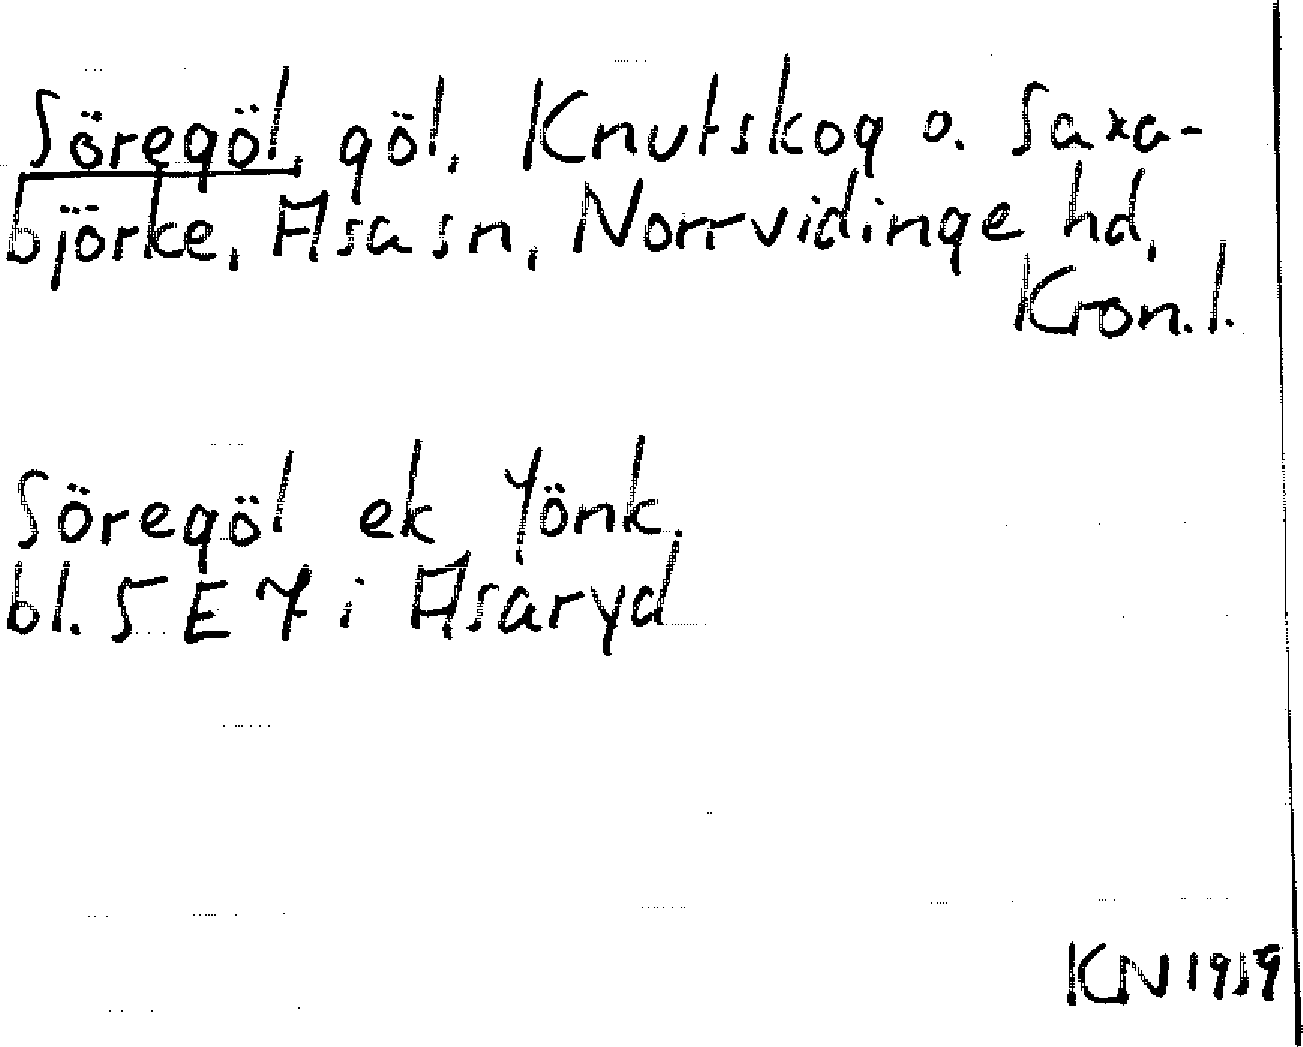 Söregöl, göl, Knutskog o. Saxa-
björke, Asa sn, Norrvidinge hd,
Kron.l.
Söregöl ek Jönk.
bl. 5 E 7 i Asaryd
KN 1919